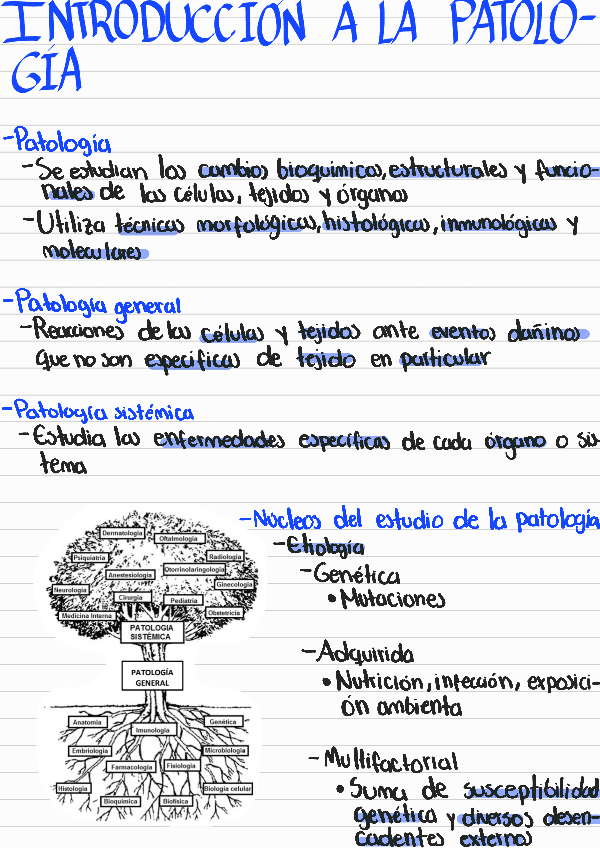 INTRODUCCIÓN A LA PATOLO-
GÍA
-Patología
-Se estudian los cambios bioquímicos, estructurales y funcio-
nales de las células, tejidos y órganos
-Utiliza técnicas morfológicas, histológicas, inmunológicas y
moleculares
-Patología general
-Reacciones de las células y tejidos ante eventos dañinos
que no son específicas de tejido en particular
-Patología sistémica
-Estudia las enfermedades específicas de cada órgano o sis-
tema
Dermatología
Oftalmología
Psiquiatría
Radiología
Anestesiología
Otorrinolaringología
Neurología
Ginecología
Cirugía
Pediatría
Medicina Interna
Obstetricia
PATOLOGIA
SISTÉMICA
PATOLOGÍA
GENERAL
Anatomía
Genética
Imunología
Embriología
Microbiología
Farmacología
Fisiología
Histología
Biología celular
Bioquímica
Biofísica
-Núcleos del estudio de la patología
-Etiología
-Genética
•Mutaciones
-Adquirida
•Nutrición, infección, exposici-
ón ambienta
-Multifactorial
•Suma de susceptibilidad
genética y diversos desen-
cadentes externos